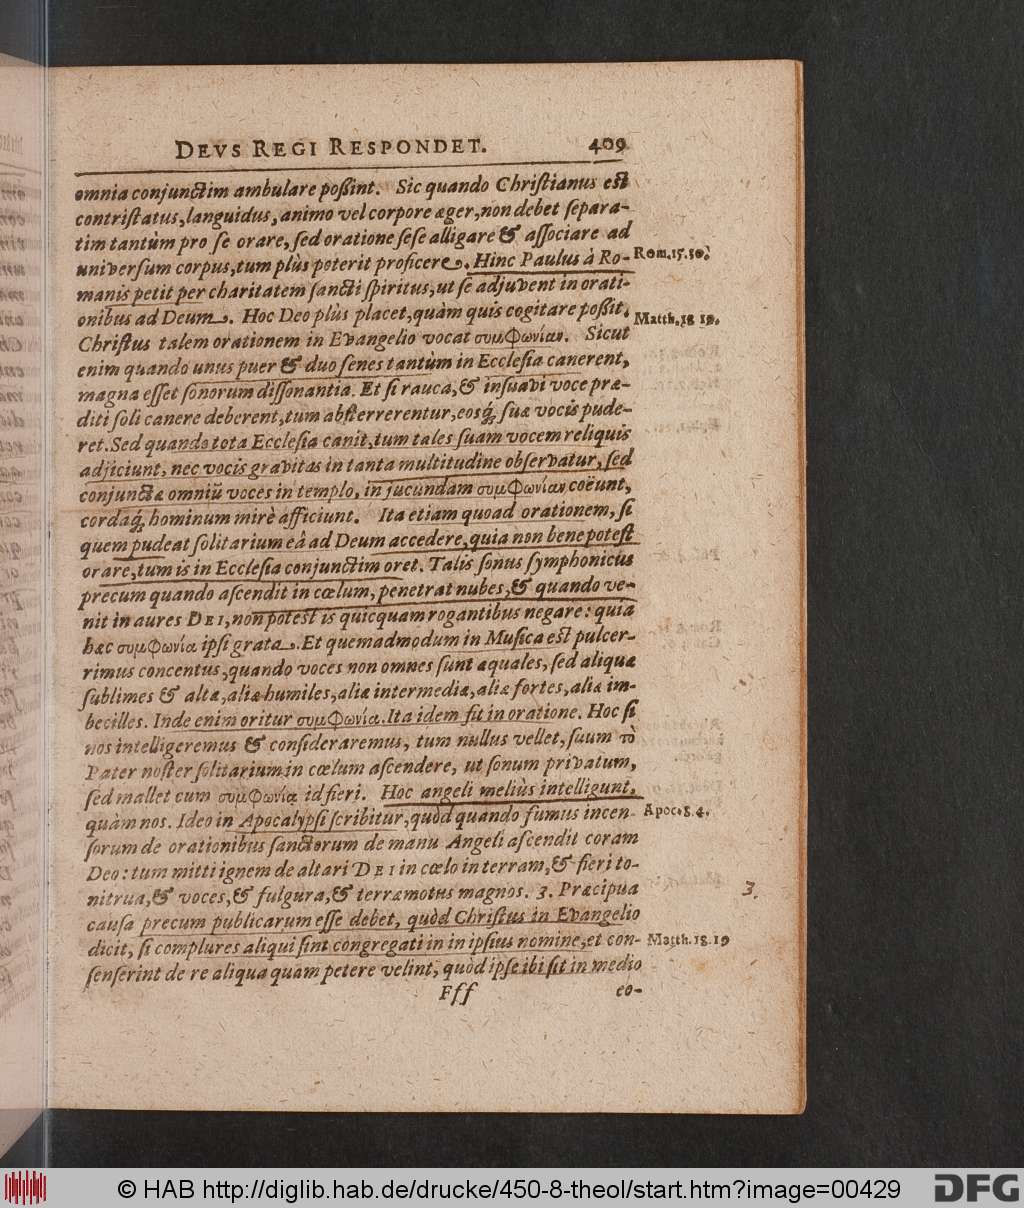 DEVS REGI RESPONDET. 409
omnia conjunctim ambulare poßint. Sic quando Christianus est
contristatus, languidus, animo vel corpore æger, non debet separa-
tim tantùm pro se orare, sed oratione sese alligare & associare ad
universum corpus, tum plùs poterit proficere. Hinc Paulus à Ro- Rom. 15. 30.
manis petit per charitatem sancti spiritus, ut se adjuvent in orati-
onibus ad Deum. Hoc Deo plùs placet, quàm quis cogitare poßit.
Christus talem orationem in Evangelio vocat συμφωνίαν. Sicut Matth. 18 19.
enim quando unus puer & duo senes tantùm in Ecclesia canerent,
magna esset sonorum dissonantia. Et si rauca, & insuavi voce præ-
diti soli canere deberent, tum absterrerentur, eosq́; suæ vocis pude-
ret. Sed quando tota Ecclesia canit, tum tales suam vocem reliquis
adjiciunt, nec vocis gravitas in tanta multitudine observatur, sed
conjunctæ omniũ voces in templo, in jucundam συμφωνίαν coëunt,
cordaq́; hominum mirè afficiunt. Ita etiam quoad orationem, si
quem pudeat solitarium eâ ad Deum accedere, quia non bene potest
orare, tum is in Ecclesia conjunctim oret. Talis sonus symphonicus
precum quando ascendit in cœlum, penetrat nubes, & quando ve-
nit in aures DEI, non potest is quicquam rogantibus negare: quia
hæc συμφωνία ipsi grata. Et quemadmodum in Musica est pulcer-
rimus concentus, quando voces non omnes sunt æquales, sed aliquæ
sublimes & altæ, aliæ humiles, aliæ intermediæ, aliæ fortes, aliæ im-
becilles. Inde enim oritur συμφωνία. Ita idem fit in oratione. Hoc si
nos intelligeremus & consideraremus, tum nullus vellet, suum τὸ
Pater noster solitarium in cœlum ascendere, ut sonum privatum,
sed mallet cum συμφωνίᾳ id fieri. Hoc angeli meliùs intelligunt,
quàm nos. Ideo in Apocalypsi scribitur, quòd quando fumus incen- Apoc. 8. 4.
sorum de orationibus sanctorum de manu Angeli ascendit coram
Deo: tum mitti ignem de altari DEI in cœlo in terram, & fieri to-
nitrua, & voces, & fulgura, & terræmotus magnos. 3. Præcipua 3.
causa precum publicarum esse debet, quòd Christus in Evangelio
dicit, si complures aliqui sint congregati in in ipsius nomine, et con- Matth. 18. 19
senserint de re aliqua quam petere velint, quòd ipse ibi sit in medio
Fff eo-
© HAB http://diglib.hab.de/drucke/450-8-theol/start.htm?image=00429 DFG